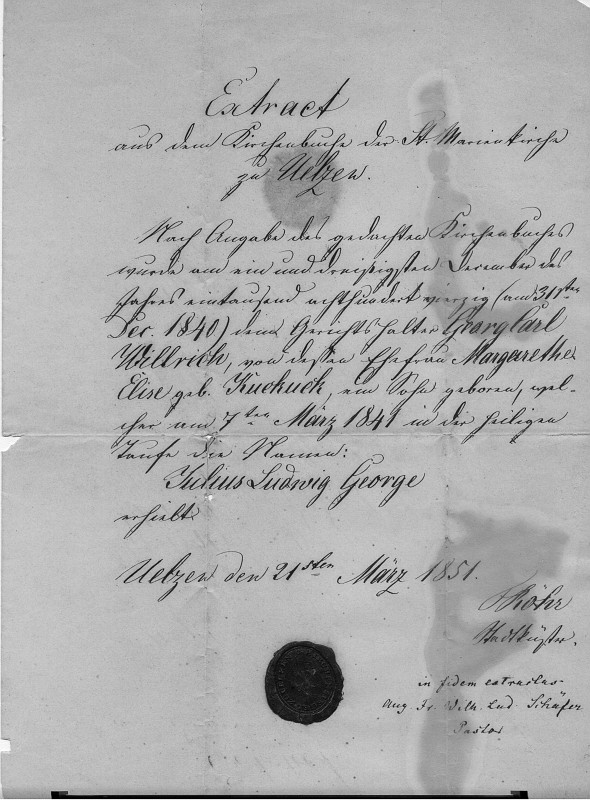 Extract
aus dem Kirchenbuche der St. Marienkirche
zu Uelzen.
Nach Angabe des gedachten Kirchenbuches
wurde am ein und dreißigsten December des
Jahres eintausend achthundert vierzig (am 31sten
Dec. 1840) dem Gerichtshalter Georg Carl
Willrich, von dessen Ehefrau Margarethe
Elise geb. Kuckuck, ein Sohn geboren, wel-
cher am 7ten März 1841 in der heiligen
Taufe die Namen:
Julius Ludwig George
erhielt.
Uelzen den 21sten März 1851.
Röhr
Stadtküster.
in fidem extractus
Aug. Fr. Wilh. Lud. Schäfer
Pastor